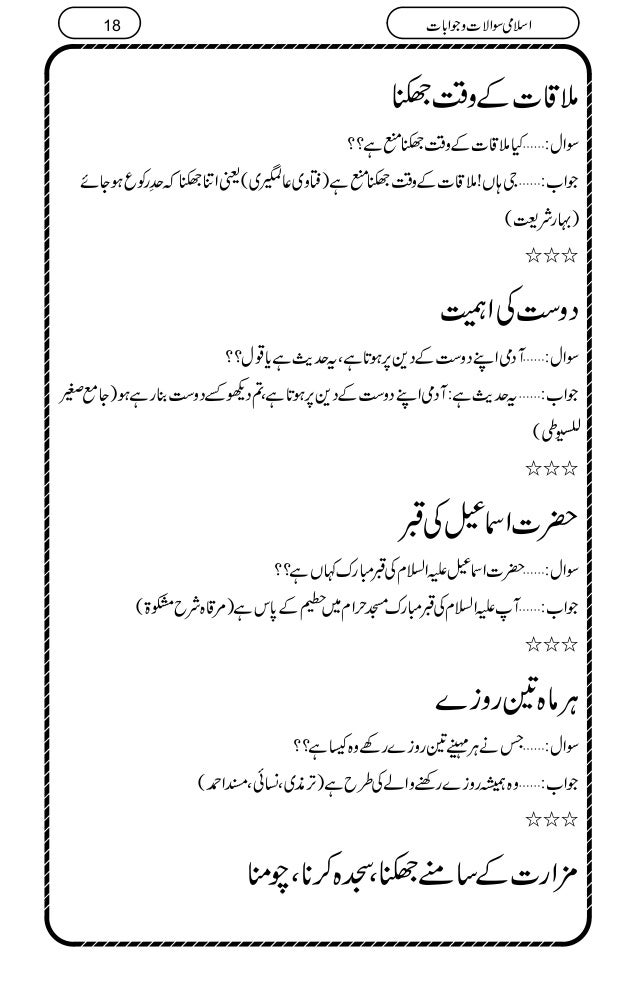 اسلامی سوالات و جوابات
18
ملاقات کے وقت جھکنا
سوال:......کیا ملاقات کے وقت جھکنا منع ہے؟؟
جواب:......جی ہاں!ملاقات کے وقت جھکنا منع ہے(فتاوی عالمگیری)یعنی اتنا جھکنا کہ حدِ رکوع ہو جائے
(بہار شریعت)
☆☆☆
دوست کی اہمیت
سوال:......آدمی اپنے دوست کے دین پر ہوتا ہے، یہ حدیث ہے یا قول؟؟
جواب:......یہ حدیث ہے: آدمی اپنے دوست کے دین پر ہوتا ہے، تم دیکھو کسے دوست بنا رہے ہو(جامع صغیر
للسیوطی)
☆☆☆
حضرت اسماعیل کی قبر
سوال:......حضرت اسماعیل علیہ السلام کی قبر مبارک کہاں ہے؟؟
جواب:......آپ علیہ السلام کی قبر مبارک مسجد حرام میں حطیم کے پاس ہے(مرقاہ شرح مشکوۃ)
☆☆☆
ہر ماہ تین روزے
سوال:......جس نے ہر مہینے تین روزے رکھے وہ کیسا ہے؟؟
جواب:......وہ ہمیشہ روزے رکھنے والے کی طرح ہے(ترمذی،نسائی،مسند احمد)
☆☆☆
مزارت کے سامنے جھکنا،سجدہ کرنا، چومنا